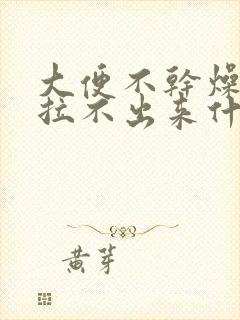 大便不幹燥
拉不出来什
黄芽